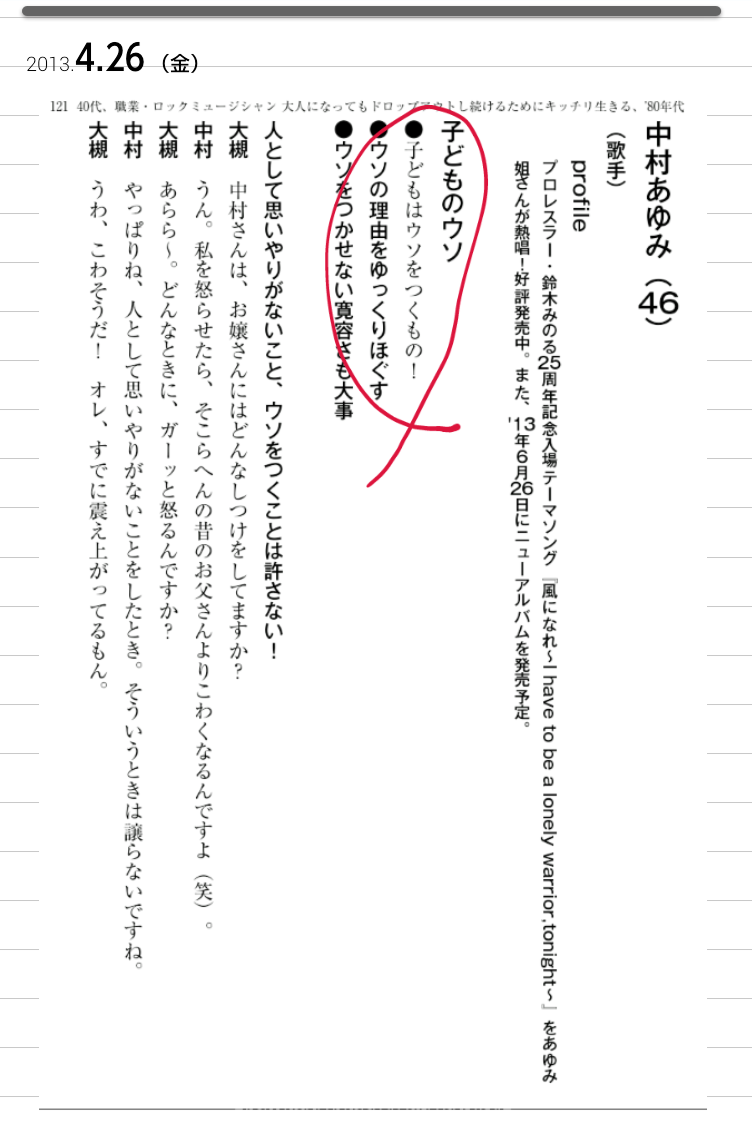 2013.4.26（金）
121 40代、職業・ロックミュージシャン 大人になってもドロップアウトし続けるためにキッチリ生きる、'80年代
中村あゆみ（46）
（歌手）
profile
プロレスラー・鈴木みのる25周年記念入場テーマソング『風になれ〜I have to be a lonely warrior,tonight〜』をあゆみ
姐さんが熱唱！好評発売中。また、'13年6月26日にニューアルバムを発売予定。
子どものウソ
●子どもはウソをつくもの！
●ウソの理由をゆっくりほぐす
●ウソをつかせない寛容さも大事
人として思いやりがないこと、ウソをつくことは許さない！
大槻　中村さんは、お嬢さんにはどんなしつけをしてますか？
中村　うん。私を怒らせたら、そこらへんの昔のお父さんよりこわくなるんですよ（笑）。
大槻　あらら〜。どんなときに、ガーッと怒るんですか？
中村　やっぱりね、人として思いやりがないことをしたとき。そういうときは譲らないですね。
大槻　うわ、こわそうだ！　オレ、すでに震え上がってるもん。